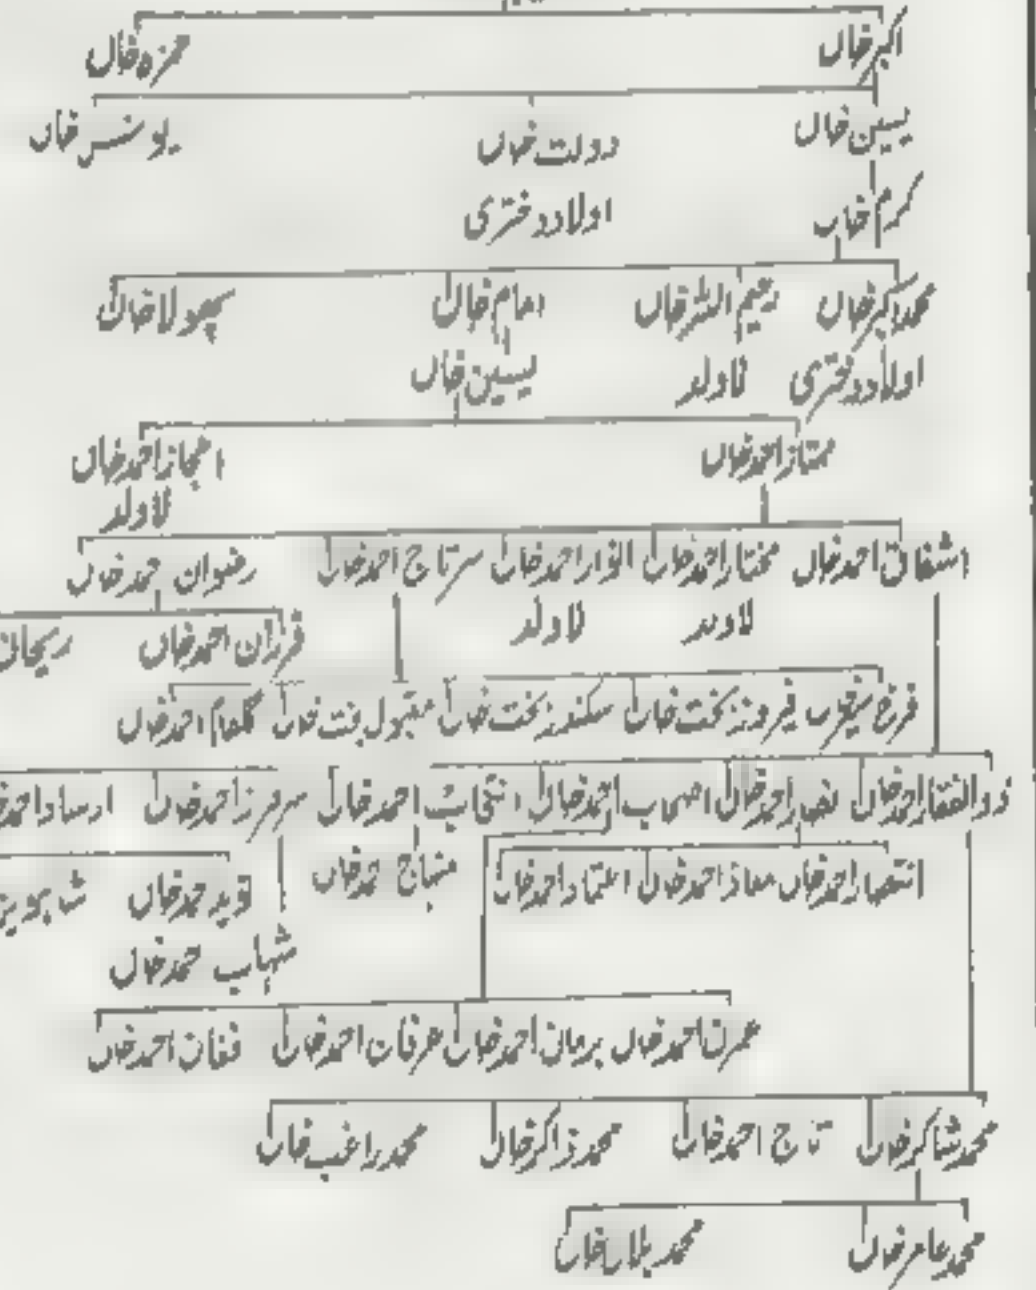 اکبر خاں حمزہ خاں
یسین خاں دولت خاں یونس خاں
کرم خاں اولاد دختری
محمد اکبر خاں رحیم اللہ خاں امام خاں پھولا خاں
اولاد دختری لاولد یسین خاں
ممتاز احمد خاں اعجاز احمد خاں
لاولد
اشفاق احمد خاں مختار احمد خاں انوار احمد خاں سرتاج احمد خاں رضوان احمد خاں
لاولد لاولد فرزان احمد خاں ریحان
فرخ فیروز بخت خاں سکندر بخت خاں مقبول بخت خاں گلفام احمد خاں
ذوالفقار احمد خاں نصار احمد خاں اصحاب احمد خاں انتخاب احمد خاں سرفراز احمد خاں ارساد احمد
انتصار احمد خاں معاذ احمد خاں اعتماد احمد خاں منہاج احمد خاں نوید احمد خاں
شہاب احمد خاں
عمرن احمد خاں برہان احمد خاں عرفات احمد خاں فغان احمد خاں
محمد شاکر خاں تاج احمد خاں محمد ذاکر خاں محمد راغب خاں
محمد عامر خاں محمد بلال خاں